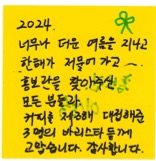 2024.
너무나 더운 여름을 지나고
한해가 저물어 가고 ~.
홍보관을 찾아주신
모든 분들과
커피를 제조해 대접해준
3명의 바리스타들께
고맙습니다. 감사합니다.